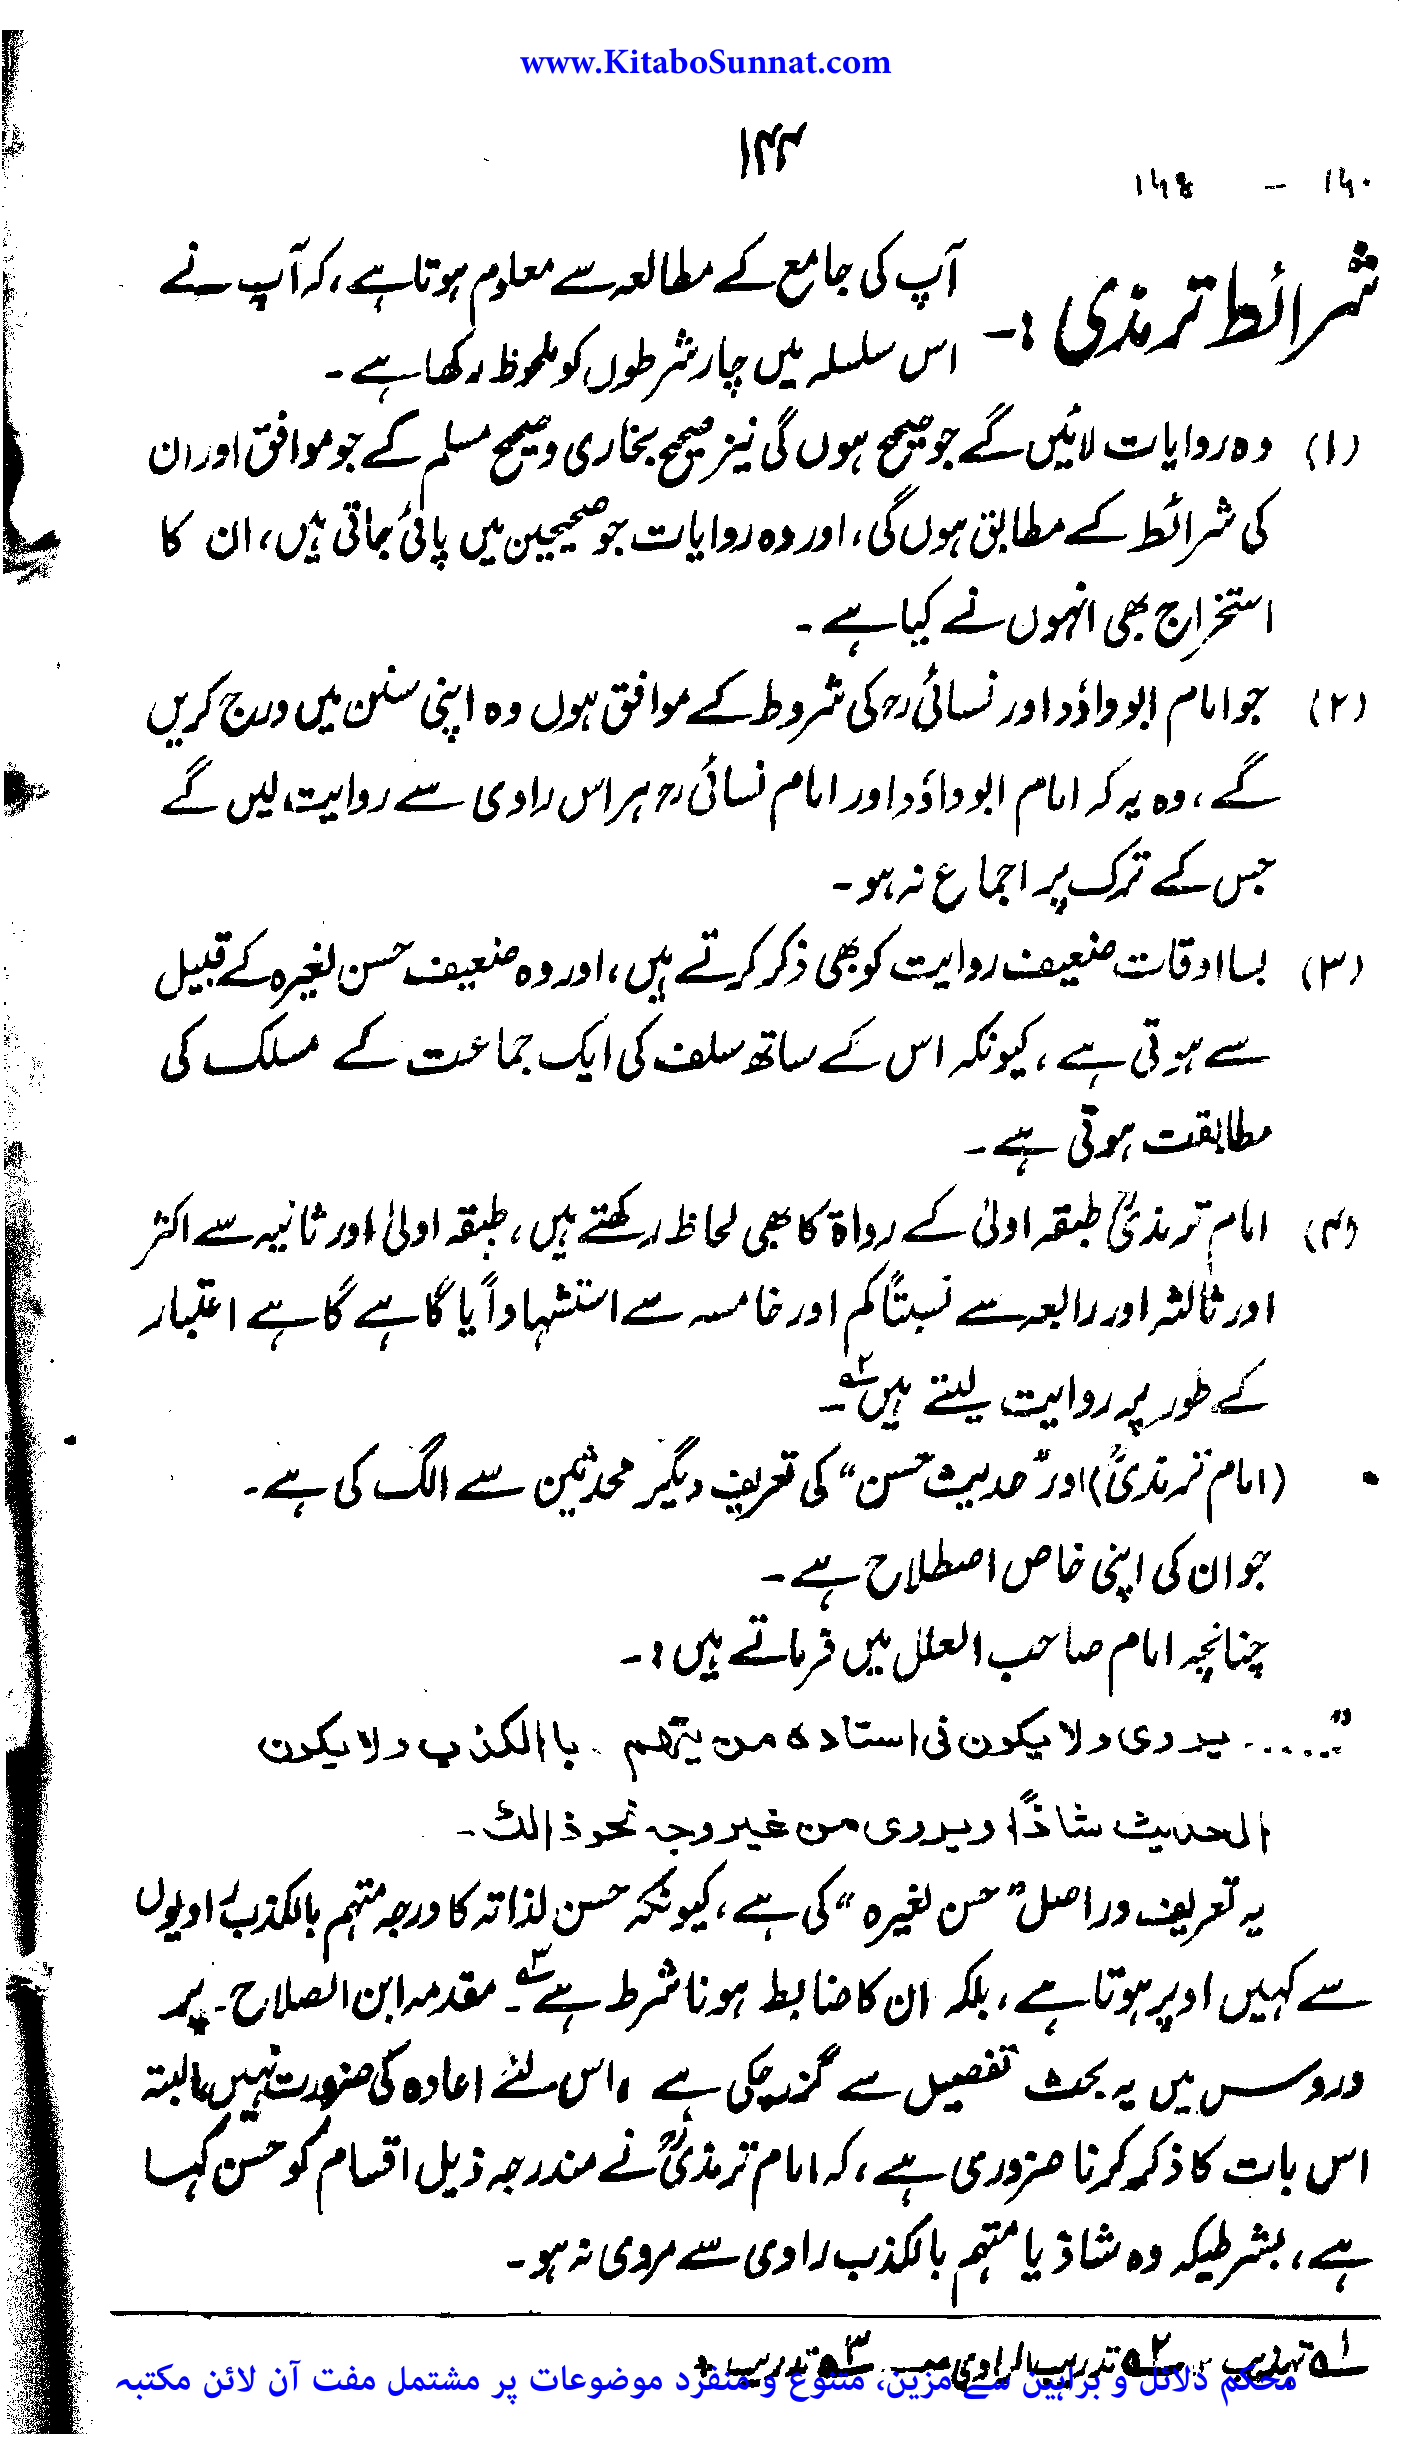 www.KitaboSunnat.com
۱۴۴
۱۶۰ –
شرائط ترمذی :- آپ کی جامع کے مطالعہ سے معلوم ہوتا ہے، کہ آپ نے
اس سلسلہ میں چار شرطوں کو ملحوظ رکھا ہے ۔
(۱) وہ روایات لائیں گے جو صحیح ہوں گی نیز صحیح بخاری و صحیح مسلم کے جو موافق اور ان
کی شرائط کے مطابق ہوں گی، اور وہ روایات جو صحیحین میں پائی جاتی ہیں، ان کا
استخراج بھی انہوں نے کیا ہے ۔
(۲) جو امام ابو داؤد اور نسائی رح کی شروط کے موافق ہوں وہ اپنی سنن میں درج کریں
گے، وہ یہ کہ امام ابو داؤد اور امام نسائی رح ہر اس راوی سے روایت لیں گے
جس کے ترک پر اجماع نہ ہو ۔
(۳) بسا اوقات ضعیف روایت کو بھی ذکر کرتے ہیں، اور وہ ضعیف حسن لغیرہ کے قبیل
سے ہوتی ہے، کیونکہ اس کے ساتھ سلف کی ایک جماعت کے مسلک کی
مطابقت ہوتی ہے ۔
(۴) امام ترمذیؒ طبقہ اولیٰ کے رواۃ کا بھی لحاظ رکھتے ہیں، طبقہ اولیٰ اور ثانیہ سے اکثر
اور ثالثہ اور رابعہ سے نسبتاً کم اور خامسہ سے استشہاداً یا گاہے گاہے اعتبار
کے طور پر روایت لیتے ہیں ۲؎ ۔
(امام ترمذیؒ) اور "حدیث حسن" کی تعریف دیگر محدثین سے الگ کی ہے ۔
جو ان کی اپنی خاص اصطلاح ہے ۔
چنانچہ امام صاحب العلل میں فرماتے ہیں :-
"..... یروی ولا یکون فی استادہ من یتھم باالکذب ولا یکون
الحدیث شاذاً ویروی من غیر وجہ نحو ذالک ۔
یہ تعریف دراصل "حسن لغیرہ" کی ہے، کیونکہ حسن لذاتہ کا درجہ متہم بالکذب راویوں
سے کہیں اوپر ہوتا ہے، بلکہ ان کا ضابط ہونا شرط ہے ۳؎ ۔ مقدمہ ابن الصلاح ۔ پر
دروس میں یہ بحث تفصیل سے گزر چکی ہے، اس لئے اعادہ کی ضرورت نہیں، البتہ
اس بات کا ذکر کرنا ضروری ہے، کہ امام ترمذیؒ نے مندرجہ ذیل اقسام کو حسن کہا
ہے، بشرطیکہ وہ شاذ یا متہم بالکذب راوی سے مروی نہ ہو ۔
۱؎ تہذیب ۲؎ تدریب الراوی ۳؎ تدریب
محکم دلائل و براہین سے مزین، متنوع و منفرد موضوعات پر مشتمل مفت آن لائن مکتبہ